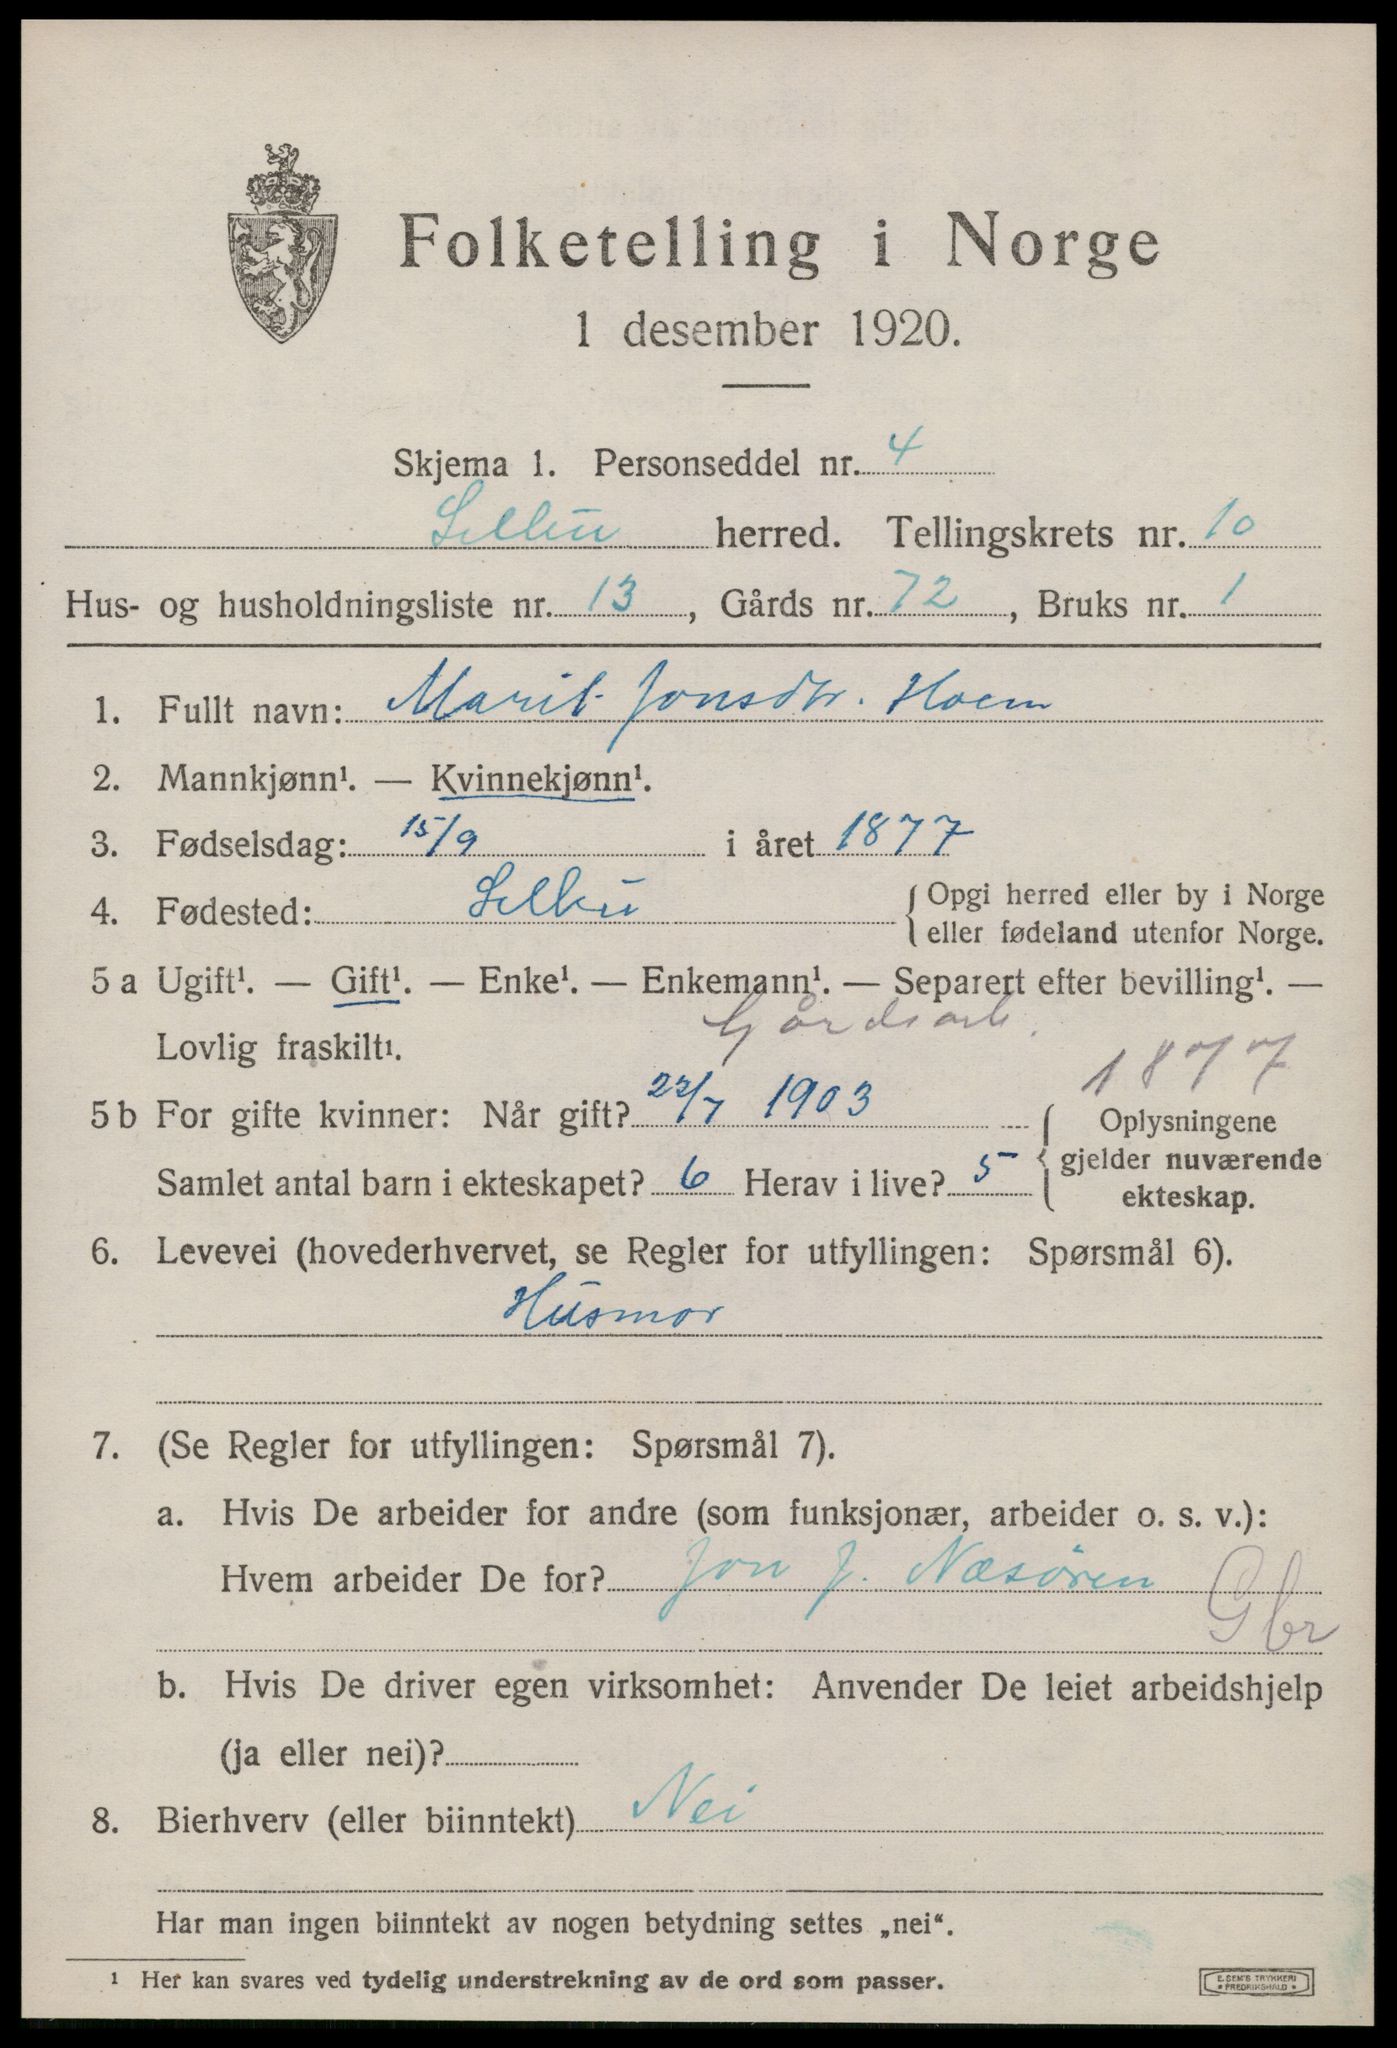 Folketelling i Norge
1 desember 1920.
Skjema 1. Personseddel nr. 4
Selbu herred. Tellingskrets nr. 10
Hus- og husholdningsliste nr. 13, Gårds nr. 72, Bruks nr. 1
1. Fullt navn: Marit Jonsdtr. Hoem
2. Mannkjønn¹. — Kvinnekjønn¹.
3. Fødselsdag: 15/9 i året 1877
4. Fødested: Selbu { Opgi herred eller by i Norge
eller fødeland utenfor Norge.
5 a Ugift¹. — Gift¹. — Enke¹. — Enkemann¹. — Separert efter bevilling¹. —
Gårdsarb.
Lovlig fraskilt¹.
1877
5 b For gifte kvinner: Når gift? 22/7 1903 { Oplysningene
gjelder nuværende
Samlet antal barn i ekteskapet? 6 Herav i live? 5
ekteskap.
6. Levevei (hovederhvervet, se Regler for utfyllingen: Spørsmål 6).
Husmor
7. (Se Regler for utfyllingen: Spørsmål 7).
a. Hvis De arbeider for andre (som funksjonær, arbeider o. s. v.):
Hvem arbeider De for? Jon J. Næsören
Gbr
b. Hvis De driver egen virksomhet: Anvender De leiet arbeidshjelp
(ja eller nei)?
8. Bierhverv (eller biinntekt) Nei
Har man ingen biinntekt av nogen betydning settes „nei“.
¹ Her kan svares ved tydelig understrekning av de ord som passer.
E. SEM'S TRYKKERI
* FREDRIKSHALD *